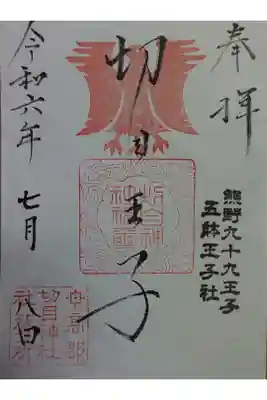 奉拝
熊野九十九王子
五躰王子社
切目王子
令和六年 七月 八日
日高郡
切目神社
社務所